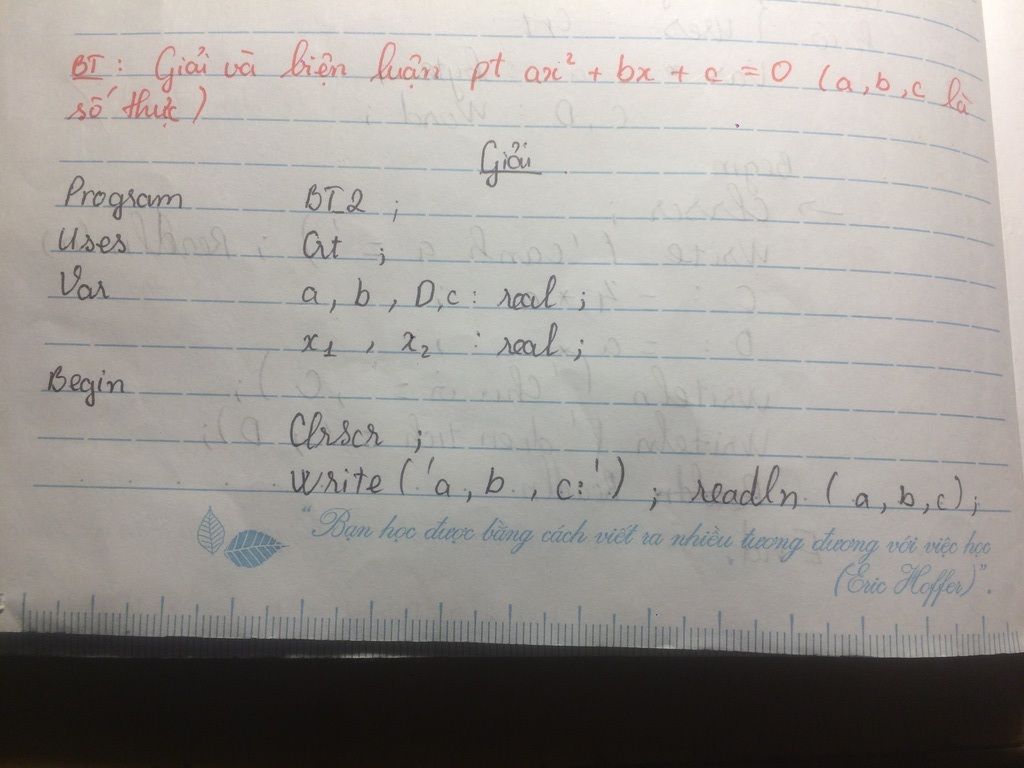 BT : Giải và biện luận pt ax² + bx + c = 0 (a, b, c là
số thực)
Giải
Program BT2 ;
Uses Crt ;
Var a, b, D, c : real ;
x₁ , x₂ : real ;
Begin
Clrscr ;
Write ('a, b, c:') ; readln (a, b, c) ;
“Bạn học được bằng cách viết ra nhiều tương đương với việc học
(Eric Hoffer)”.